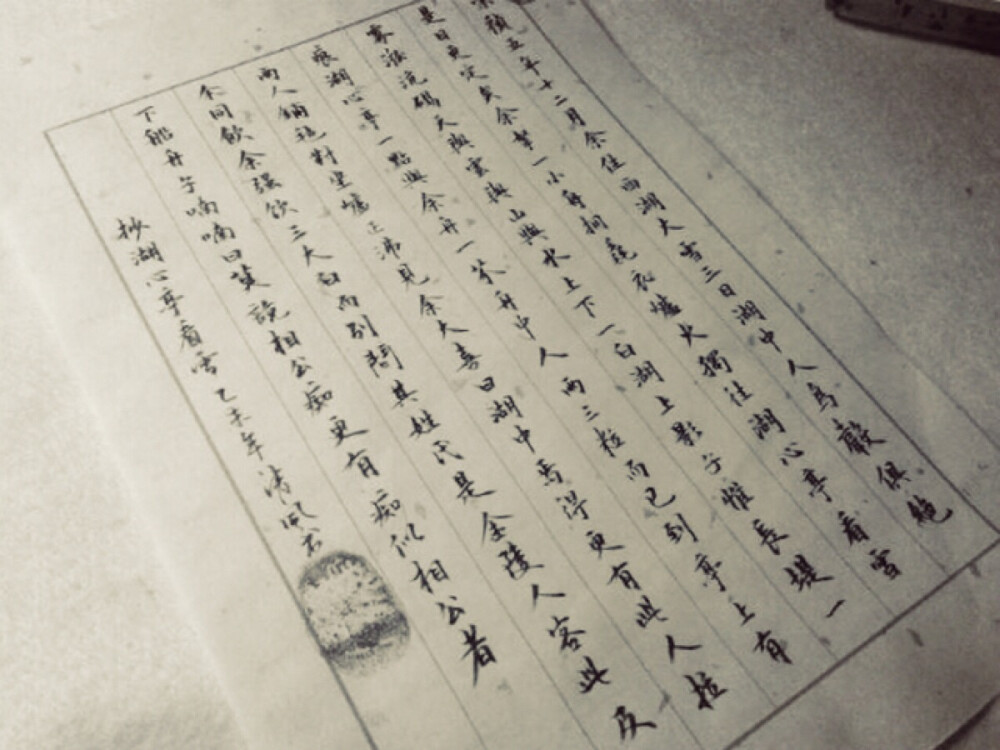 崇禎五年十二月余住西湖大雪三日湖中人鳥聲俱絶
是日更定矣余挐一小舟拥毳衣爐火獨往湖心亭看雪
霧淞沆碭天與雲與山與水上下一白湖上影子惟長堤一
痕湖心亭一點與余舟一芥舟中人兩三粒而已到亭上有
兩人鋪氈對坐爐正沸見余大喜曰湖中焉得更有此人拉
余同飲余强飲三大白而别問其姓氏是金陵人客此及
下船舟子喃喃曰莫說相公痴更有痴似相公者
抄湖心亭看雪乙未年清風书